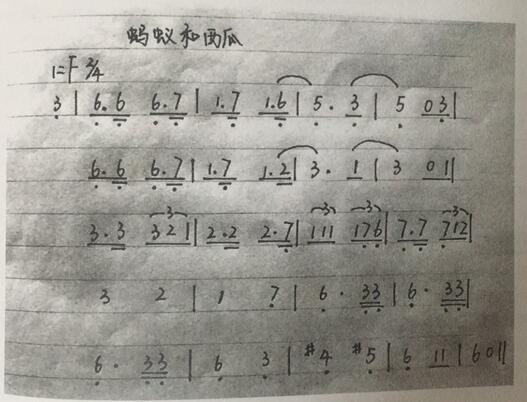 蚂蚁和西瓜
1=F 2/4
3 | 6.6 6.7 | 1.7 1.6 | 5. 3 | 5 03 |
6.6 6.7 | 1.7 1.2 | 3. 1 | 3 01 |
3.3 321 | 2.2 2.7 | 111 176 | 7.7 712 |
3 2 | 1 7 | 6. 33 | 6. 33 |
6. 33 | 6 3 | #4 #5 | 6 11 | 601 |